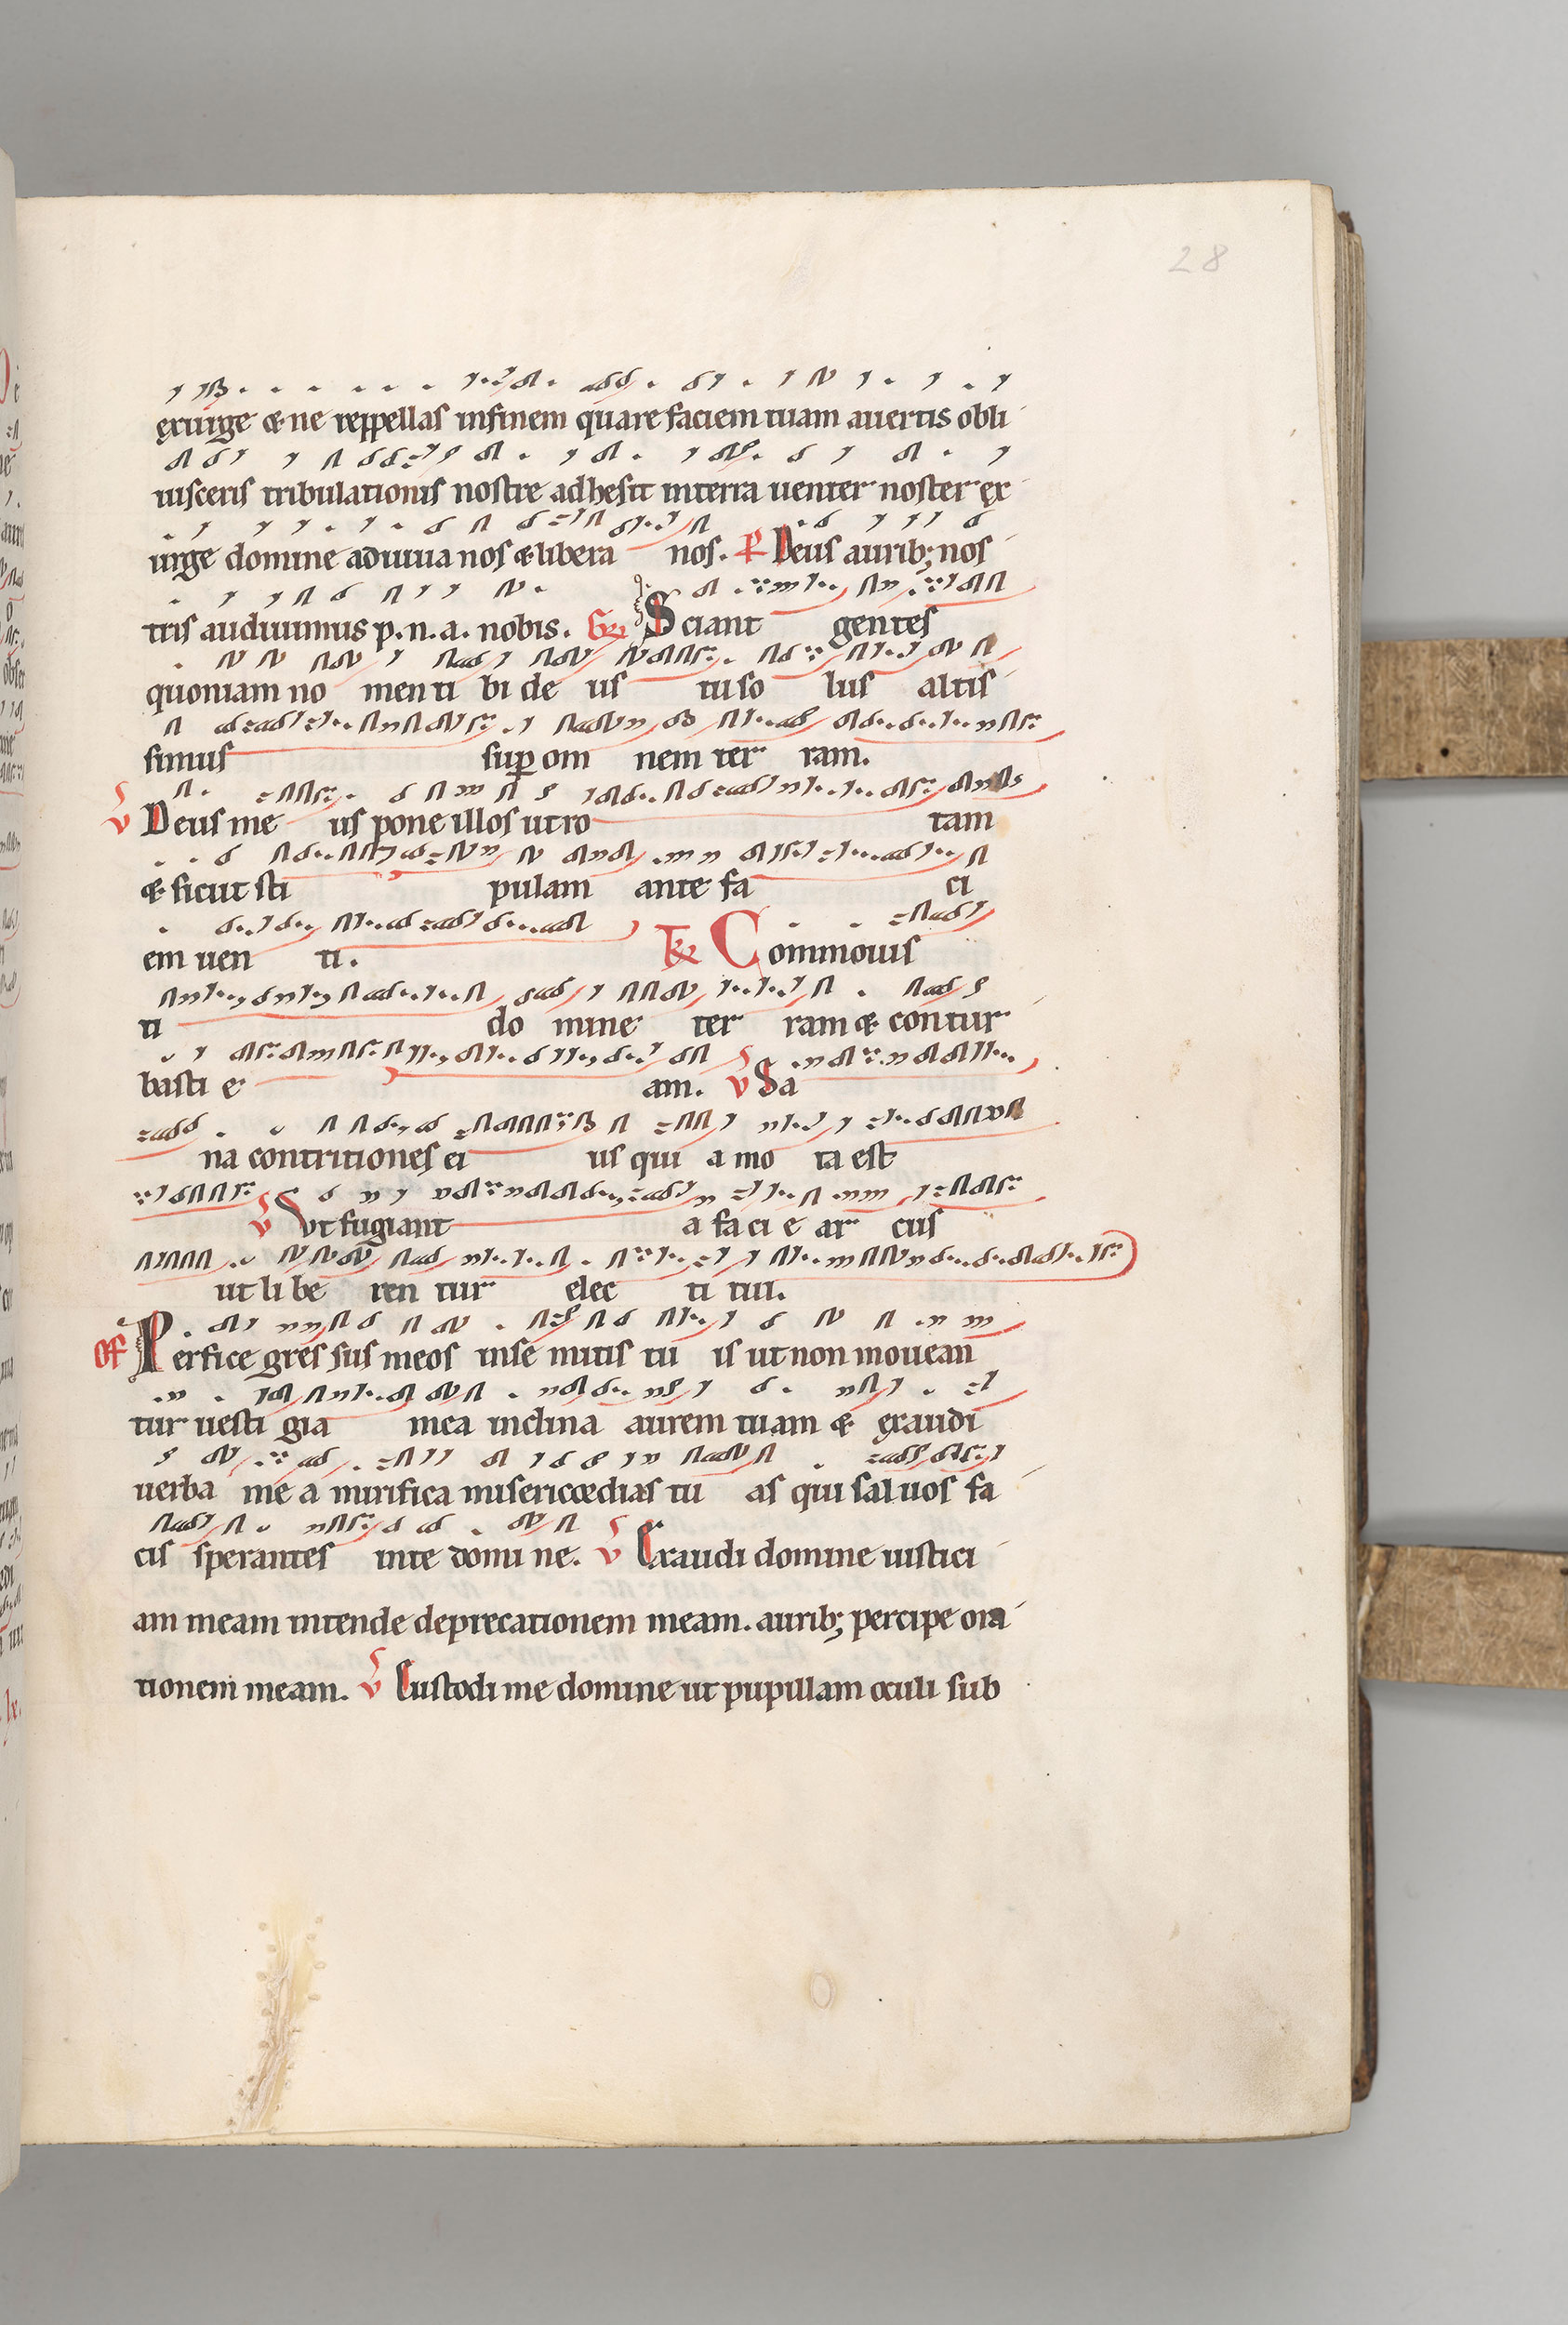 28
exurge & ne reppellas infinem quare faciem tuam auertis obli
uisceris tribulationis nostre adhesit interra uenter noster ex
urge domine adiuua nos & libera nos. P Deus aurib; nos
tris audiuimus p. n. a. nobis. Gr Sciant gentes
quoniam no men ti bi de us tu so lus altis
simus sup om nem ter ram.
v Deus me us pone illos ut ro tam
& sicut sti pulam ante fa ci
em uen ti. Tr Commouis
ti do mine ter ram & contur
basti e am. v Sa
na contritiones ei us qui a mo ta est
v Vt fugiant a fa ci e ar cus
ut li be ren tur elec ti tui.
OF Perfice gres sus meos inse mitis tu is ut non mouean
tur uesti gia mea inclina aurem tuam & exaudi
uerba me a mirifica misericordias tu as qui saluos fa
cis sperantes inte domi ne. v Exaudi domine iustici
am meam intende deprecationem meam. aurib; percipe ora
tionem meam. v Custodi me domine ut pupillam oculi sub